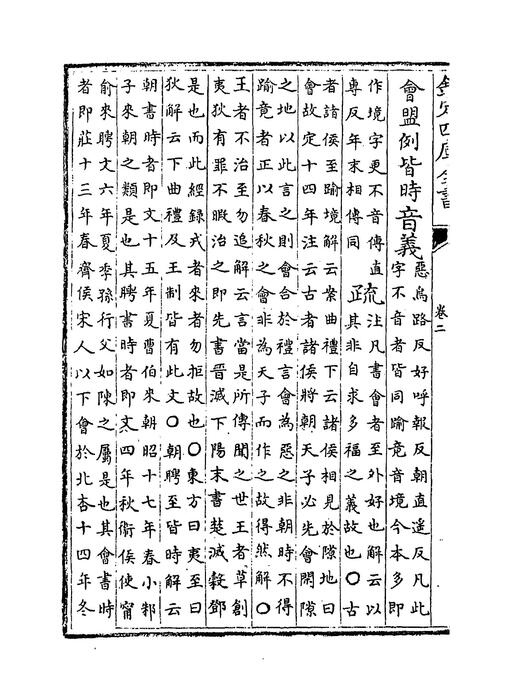 欽定四庫全書
卷二
會盟例皆時音義
惡烏路反好呼報反朝直遥反凡此
字不音者皆同踰竟音境今本多即
作境字更不音傳直
專反年末相傳同
疏
注凡書會者至外好也解云以
其非自求多福之義故也〇古
者諸侯至踰境解云案曲禮下云諸侯相見於隙地曰
會故定十四年注云古者諸侯將朝天子必先會間隙
之地以此言之則會合於禮言會為惡之非朝時不得
踰竟者正以春秋之會非為天子而作之故得然解〇
王者不治至勿追解云言當是所傳聞之世王者草創
夷狄有罪不暇治之即先書晉滅下陽末書楚滅穀鄧
是也而此經録戎者來者勿拒故也〇東方曰夷至曰
狄解云下曲禮及王制皆有此文〇朝聘至皆時解云
朝書時者即文十五年夏曹伯來朝昭十七年春小邾
子來朝之類是也其聘書時者即文四年秋衛侯使甯
俞來聘文六年夏季孫行父如陳之屬是也其會書時
者即莊十三年春齊侯宋人以下會於北杏十四年冬